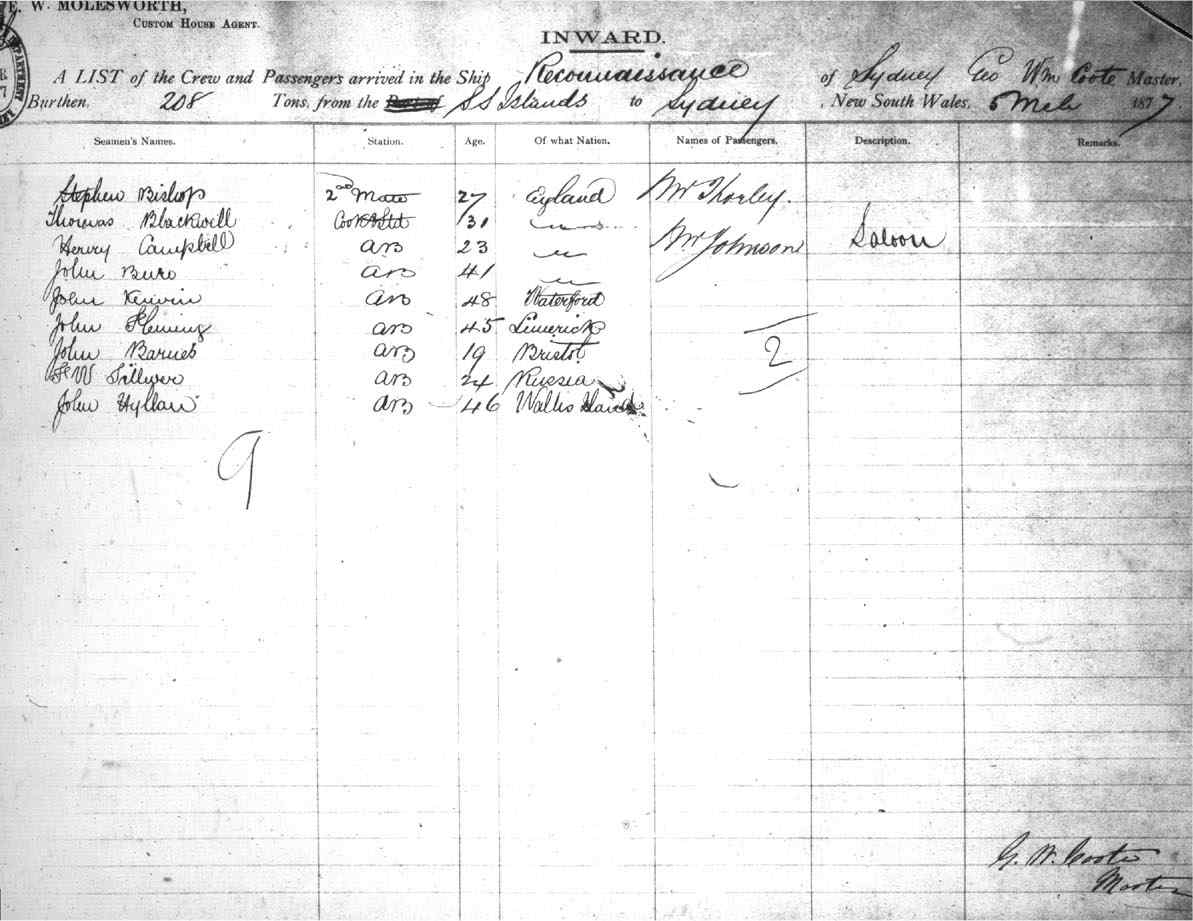 E. W. MOLESWORTH,
CUSTOM HOUSE AGENT.
INWARD.
A LIST of the Crew and Passengers arrived in the Ship Reconnaissance of Sydney Geo Wm Coote Master,
Burthen, 208 Tons, from the Port of S S Islands to Sydney, New South Wales, 5 Mch 1877
Seamen's Names. Station. Age. Of what Nation. Names of Passengers. Description. Remarks.
Stephen Bishop 2nd Mate 27 England Mr Thorley.
Thomas Blackwell Cook & Std 31 "
Henry Campbell AB 23 " Mr Johnson Saloon
John Buro AB 41 "
John Kerwin AB 48 Waterford
John Fleming AB 45 Limerick
John Barnes AB 19 Bristol 2
W AB 24 Russia
John Hyllan AB 46 Wallis Island
9
G. W. Coote
Master